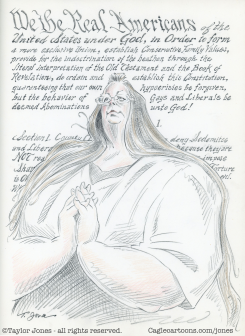 We the Real Americans of the
United States under God, in Order to form
a more exclusive Union, establish Conservative Family Values,
provide for the indoctrination of the heathen through the
literal interpretation of the Old Testament and the Book of
Revelation, do ordain and establish this Constitution,
guaranteeing that our own hypocrisies be forgiven,
but the behavior of Gays and Liberals be
deemed Abominations unto God!
1.
Section 1. Sodomites
and Liberals because they are
NOT impose
Torture
©Taylor Jones - all rights reserved. Caglecartoons.com/jones